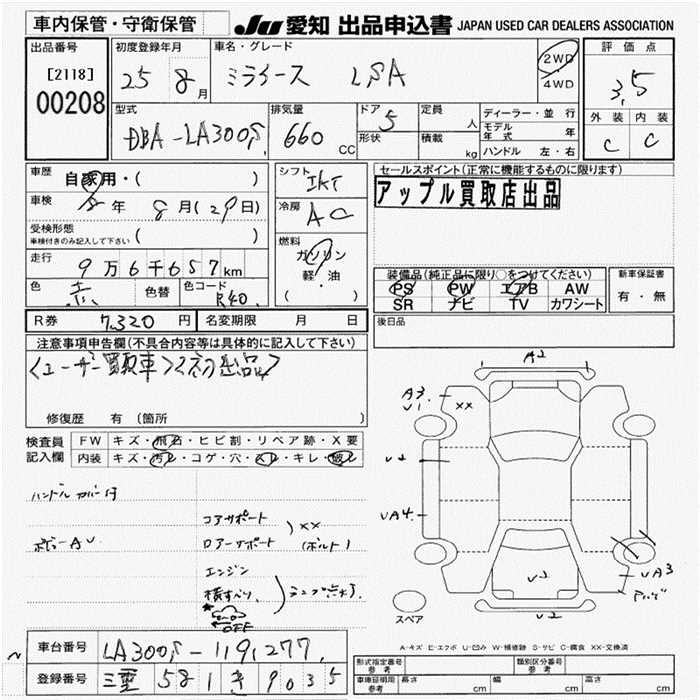 車内保管・守衛保管
JU 愛知 出品申込書 JAPAN USED CAR DEALERS ASSOCIATION
出品番号
[2118]
00208
初度登録年月
25 8月
車名・グレード
ミライース LSA
2WD
4WD
評価点
3.5
外装 内装
C C
型式
DBA-LA300S
排気量
660 CC
ドア 5
形状
定員 人
積載 kg
ディーラー・並行
モデル年式 年
ハンドル 左・右
車歴 自家用・( )
車検 年 8月(29日)
受検形態
車検付きのみ記入して下さい ( )
走行 9万6千657km
色 赤 色替 色コード R40
シフト IAT
冷房 AC
燃料
ガソリン
軽・油
( )
セールスポイント(正常に機能するものに限ります)
アップル買取店出品
装備品(純正品に限り○をつけてください)
PS PW エアB AW
SR ナビ TV カワシート
新車保証書
有・無
R券 7,320円 名変期限 月 日
後日品
注意事項申告欄(不具合内容等は具体的に記入して下さい)
<ユーザー買取車><初出品>
修復歴 有 (箇所 )
検査員記入欄
FW キズ・飛石・ヒビ割・リペア跡・X要
内装 キズ・汚レ・コゲ・穴・スレ・キレ・破レ
ハンドルカバー付
ボデーAU
コアサポート
ロアーサポート
XX
(ボルト)
エンジン
横すべり
OFF
ランプ点灯
A2
A3
U1
XX
U2
UA4
U2
UA3
U2
スペア
A-キズ E-エクボ U-凹み W-補修跡 S-サビ C-腐食 XX-交換済
車台番号 LA300S-1191277
登録番号 三重 581 き 9035
形式指定番号
参考
類別区分番号
参考
車庫証明用
参考
長さ cm
幅 cm
高さ cm